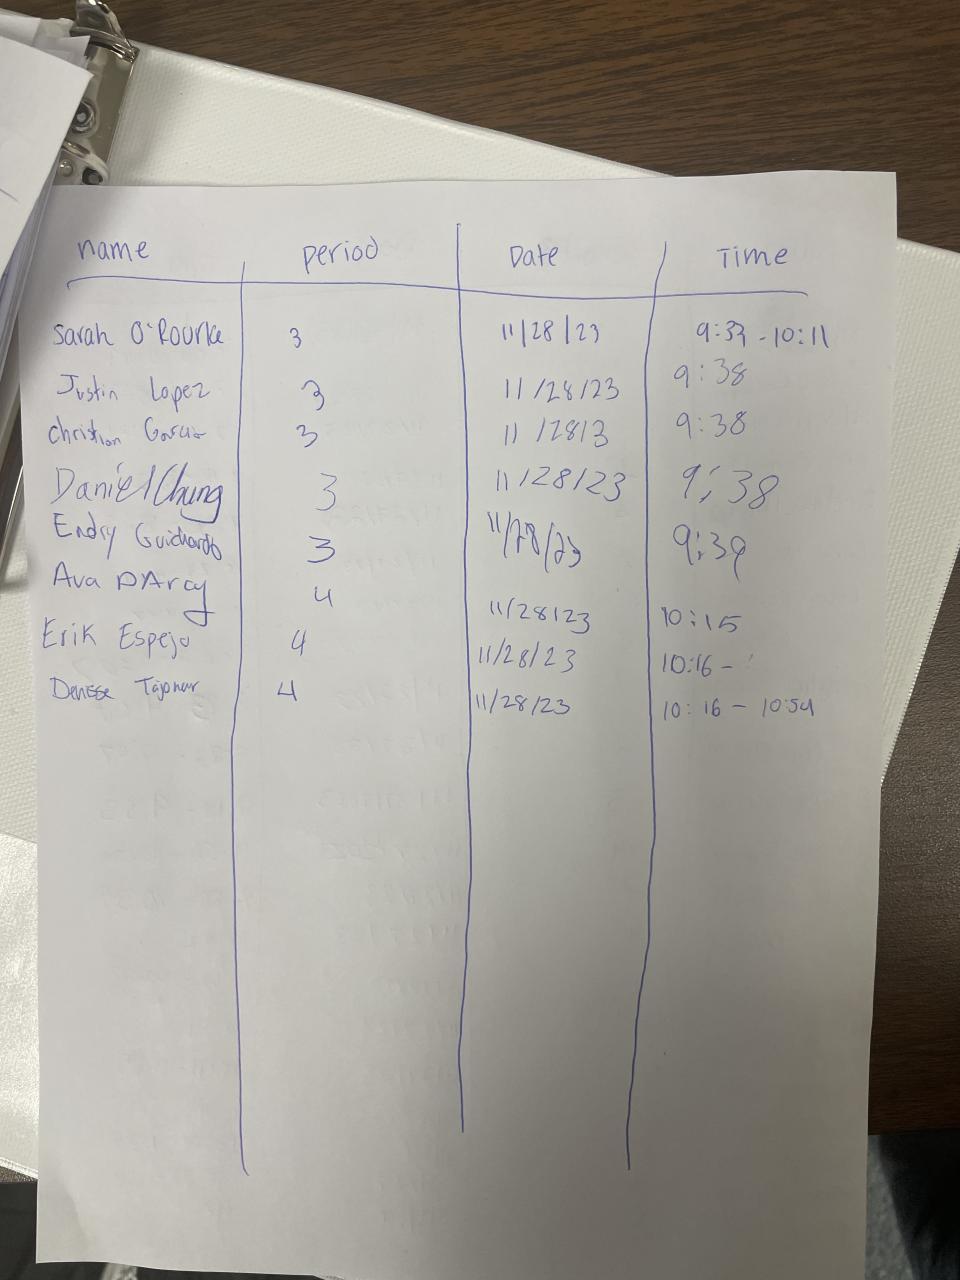 name Period Date Time
Sarah O'Rourke 3 11/28/23 9:33 - 10:11
Justin Lopez 3 11/28/23 9:38
Christian Garcia 3 11/28/3 9:38
Daniel Chung 3 11/28/23 9:38
Endry Guichardo 3 11/28/23 9:39
Ava DArcy 4 11/28/23 10:15
Erik Espejo 4 11/28/23 10:16 -
Denisse 4 11/28/23 10:16 - 10:54